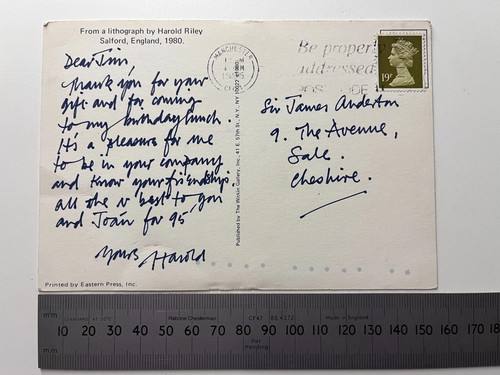 From a lithograph by Harold Riley
Salford, England, 1980.
Dear Jim,
Thank you for your
gift and for coming
to my birthday lunch.
It's a pleasure for me
to be in your company
and know your friendship.
all the v best to you
and Joan for 95
yours Harold
Printed by Eastern Press, Inc.
Published by The Winkin Gallery, Inc. 41 E. 57th St., N.Y., NY
MANCHESTER
Be properly
addressed
POSTCODE
19
Sir James Anderton
9. The Avenue,
Sale.
Cheshire.
m/m Rabone Chesterman CF47 Made in England m/m
10 20 30 40 50 60 70 80 90 100 110 120 130 140 150 160 170 18
m/m Pat Pending m/m